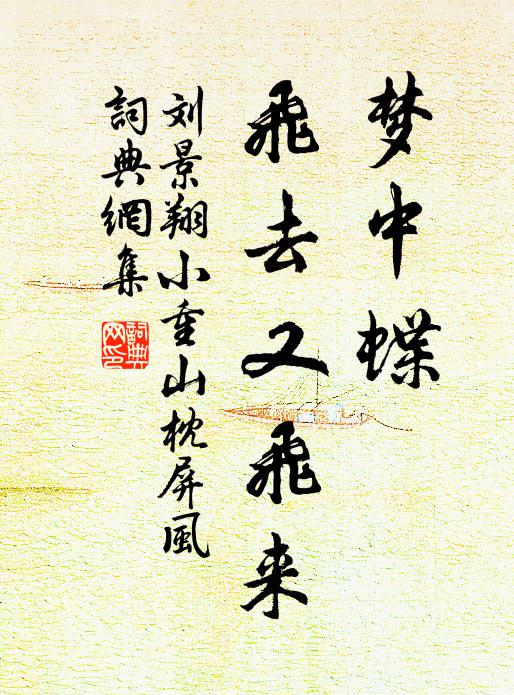 梦中蝶
飛去又飛来
刘景翔小重山枕屏風
詞典網集
詞典网印